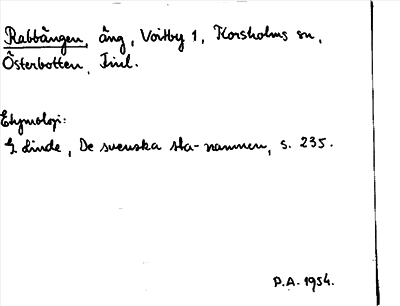 Rabbängen, äng, Voitby 1, Korsholms sn,
Österbotten, Finl.
Etymologi:
G. Linde, De svenska sta-namnen, s. 235.
P.A. 1954.